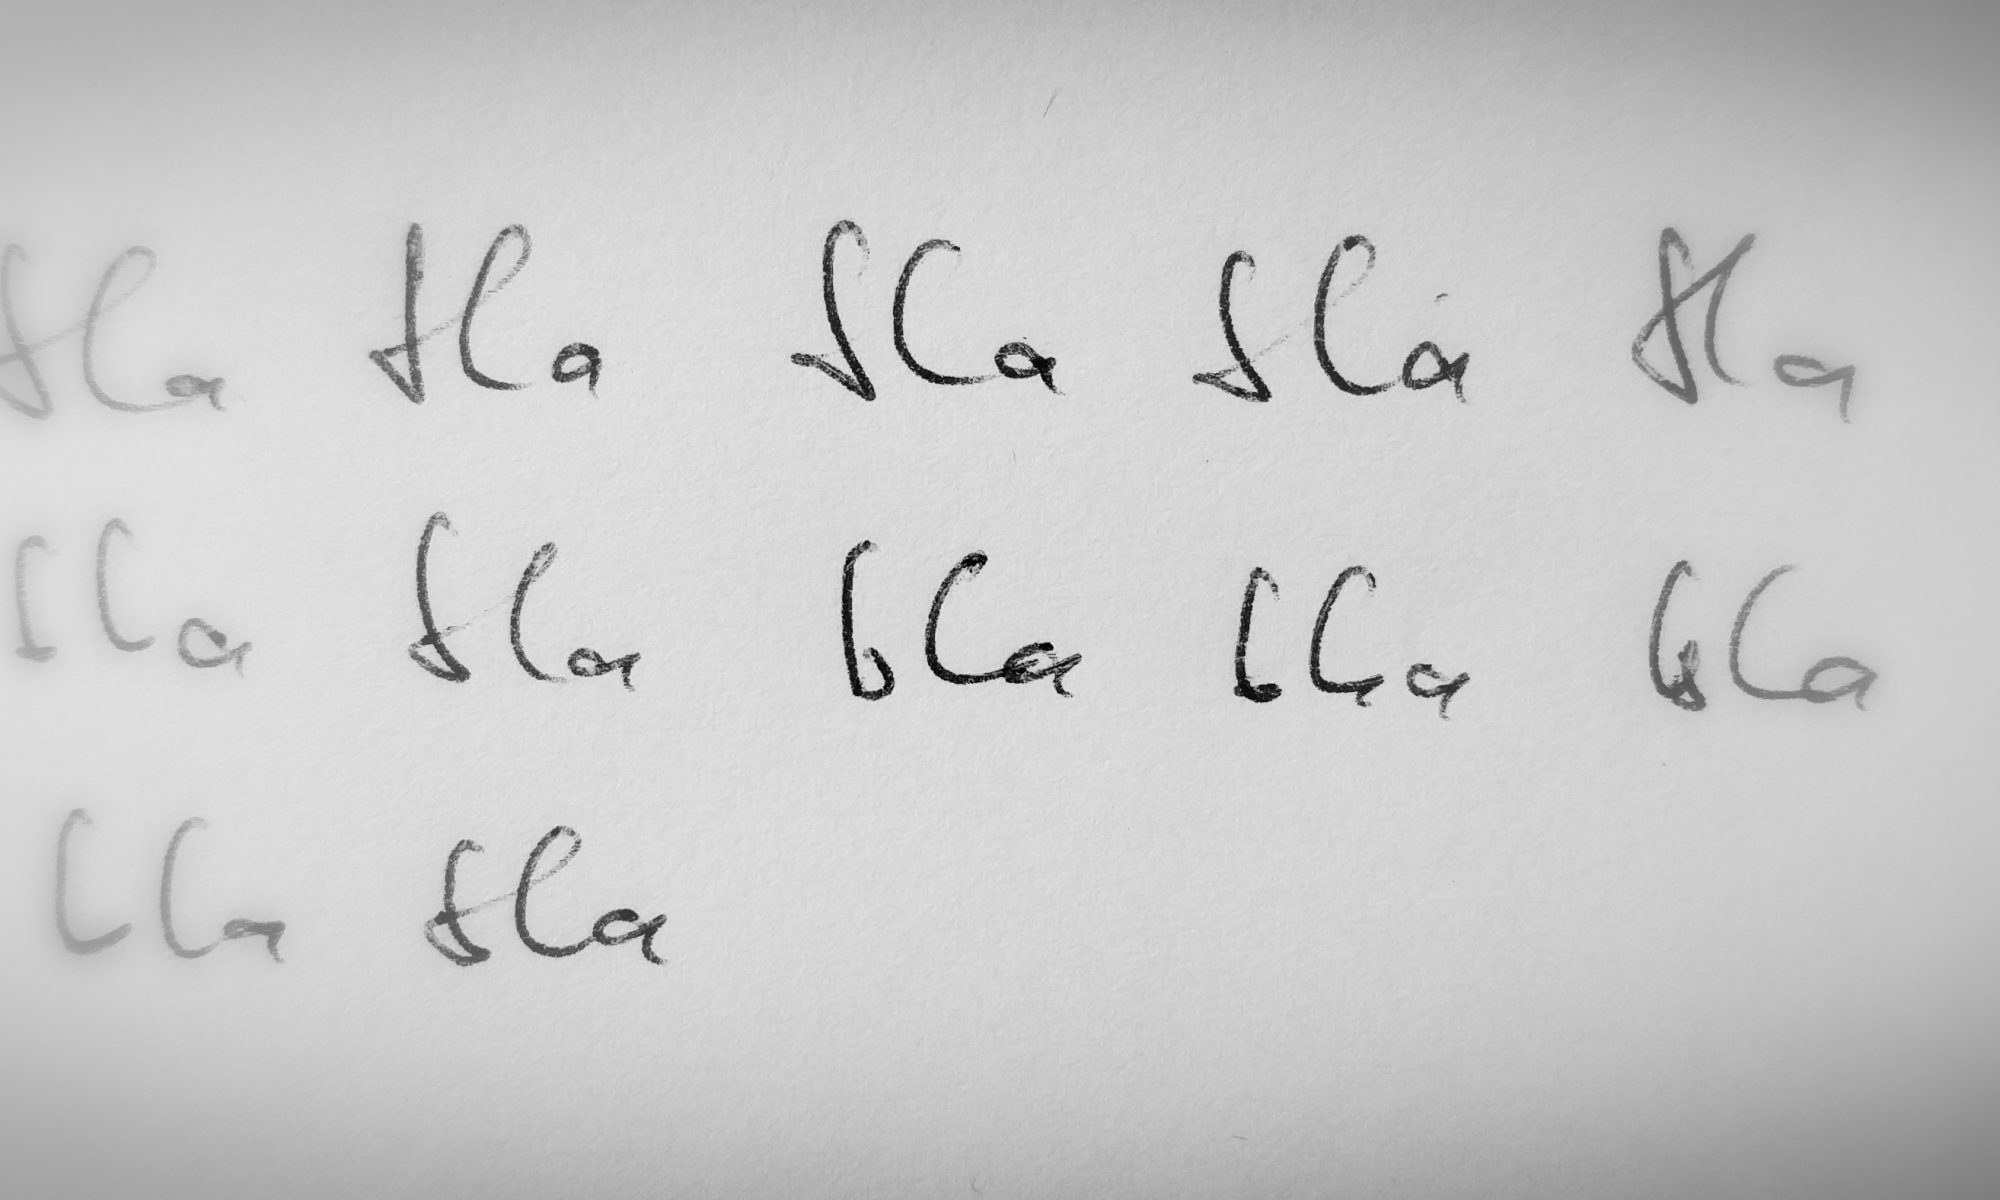 bla bla bla bla bla
bla bla bla bla bla
bla bla